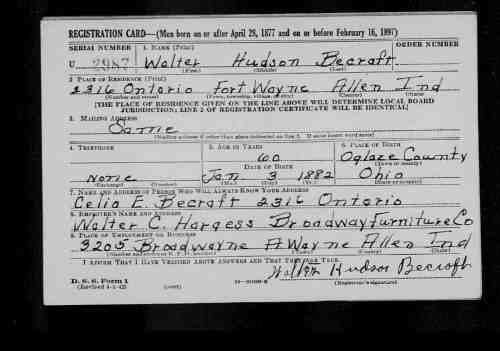 REGISTRATION CARD—(Men born on or after April 28, 1877 and on or before February 16, 1897)
SERIAL NUMBER 1. NAME (Print) ORDER NUMBER
U 2987 Walter Hudson Becraft
(First) (Middle) (Last)
2. PLACE OF RESIDENCE (Print)
2316 Ontario Fort Wayne Allen Ind
(Number and street) (Town, township, village, or city) (County) (State)
[THE PLACE OF RESIDENCE GIVEN ON THE LINE ABOVE WILL DETERMINE LOCAL BOARD
JURISDICTION; LINE 2 OF REGISTRATION CERTIFICATE WILL BE IDENTICAL]
3. MAILING ADDRESS
Same
[Mailing address if other than place indicated on line 2. If same insert word same]
4. TELEPHONE 5. AGE IN YEARS 6. PLACE OF BIRTH
60 Oglaze County
DATE OF BIRTH (Town or county)
None Jan 3 1882 Ohio
(Exchange) (Number) (Mo.) (Day) (Yr.) (State or country)
7. NAME AND ADDRESS OF PERSON WHO WILL ALWAYS KNOW YOUR ADDRESS
Celia E. Becraft 2316 Ontario
8. EMPLOYER'S NAME AND ADDRESS
Walter C. Hargess Broadway Furniture Co
9. PLACE OF EMPLOYMENT OR BUSINESS
3205 Broadwayne Ft Wayne Allen Ind
(Number and street or R. F. D. number) (Town) (County) (State)
I AFFIRM THAT I HAVE VERIFIED ABOVE ANSWERS AND THAT THEY ARE TRUE.
Walter Hudson Becraft
D. S. S. Form 1
(Revised 4-1-42) (over) (Registrant's signature)